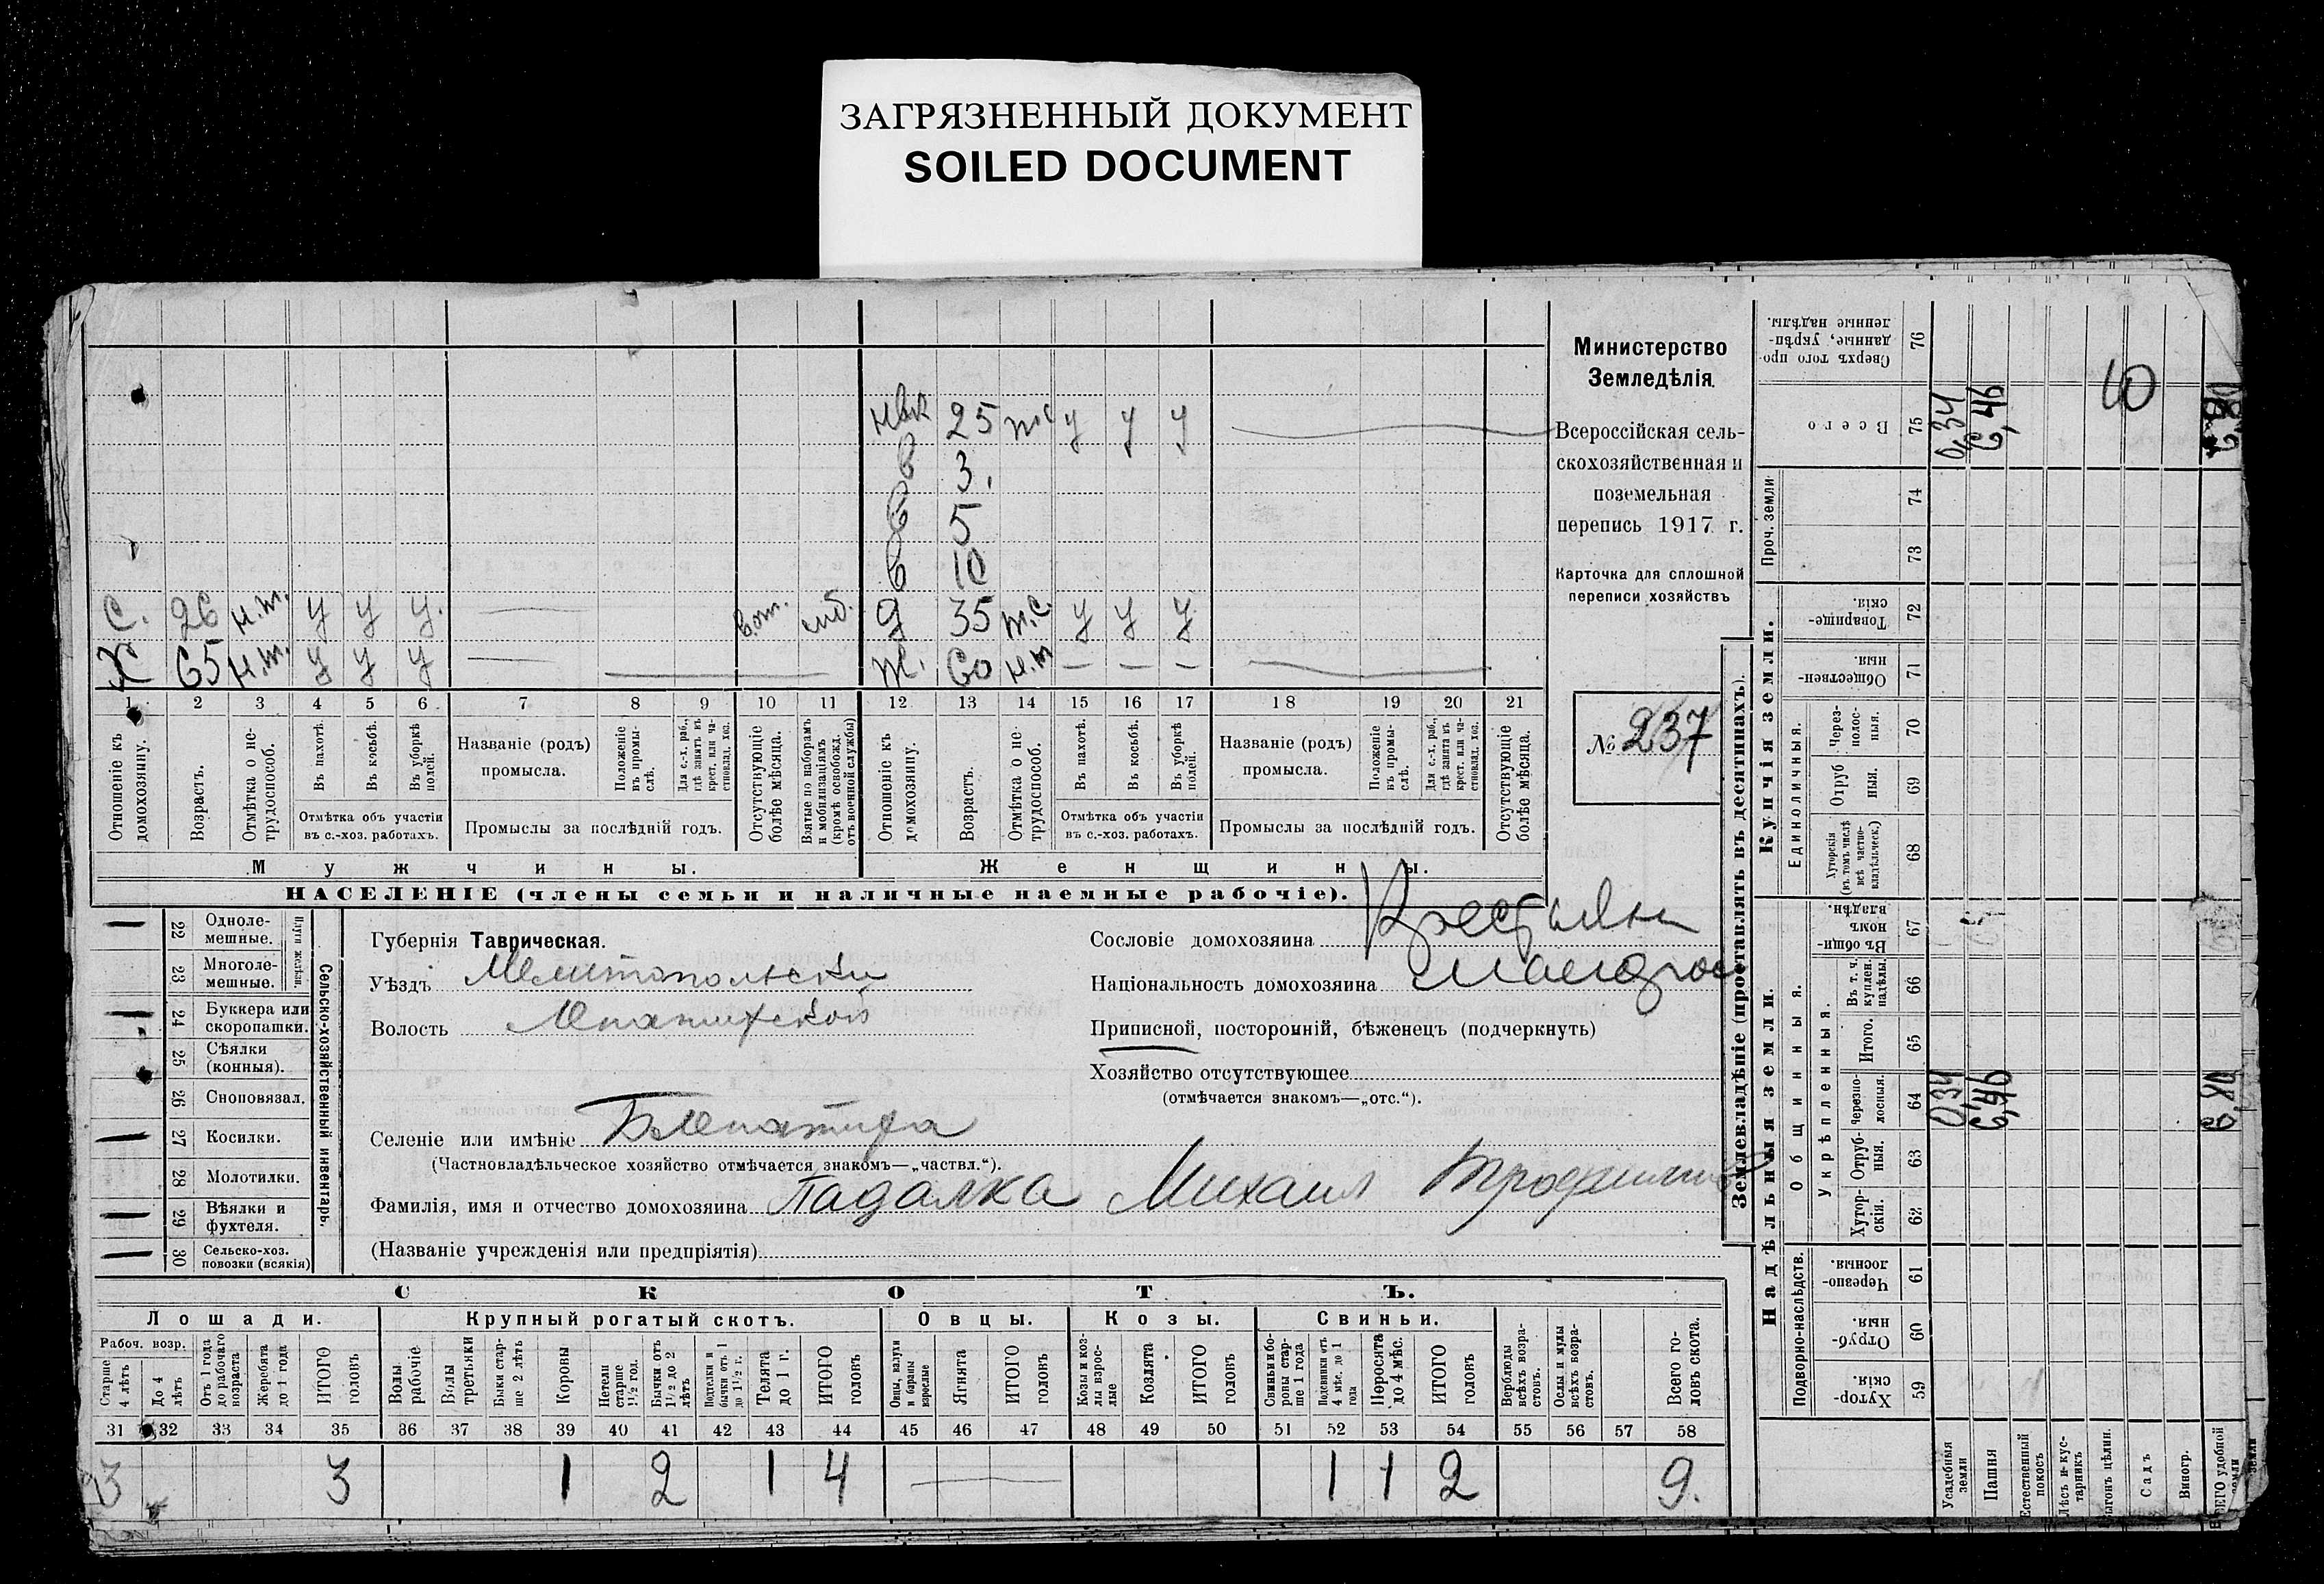 ЗАГРЯЗНЕННЫЙ ДОКУМЕНТ
SOILED DOCUMENT
25 у у у
в 3.
в 5
в 10
С. 26 н.т. у у у. д 35 т.с. у у у
Х 65 н.т. у у у ж. 60 н.т — — —
1 2 3 4 5 6 7 8 9 10 11 12 13 14 15 16 17 18 19 20 21
Отношеніе къ домохозяину.
Возрастъ.
Отмѣтка о нетрудоспособ.
Въ пахотѣ.
Въ косьбѣ.
Въ уборкѣ полей.
Отмѣтка объ участіи въ с.-хоз. работахъ.
Названіе (родъ) промысла.
Положеніе въ промыслѣ.
Для с.-х. раб., гдѣ занятъ въ крест. или частновлад. хоз.
Промыслы за послѣдній годъ.
Отсутствующіе болѣе мѣсяца.
Взятые по наборамъ и мобилизаціямъ (кромѣ освобожд. отъ военной службы)
Отношеніе къ домохозяину.
Возрастъ.
Отмѣтка о нетрудоспособ.
Въ пахотѣ.
Въ косьбѣ.
Въ уборкѣ полей.
Отмѣтка объ участіи въ с.-хоз. работахъ.
Названіе (родъ) промысла.
Положеніе въ промыслѣ.
Для с.-х. раб., гдѣ занята въ крест. или частновлад. хоз.
Промыслы за послѣдній годъ.
Отсутствующіе болѣе мѣсяца.
Мужчины. Женщины.
НАСЕЛЕНІЕ (члены семьи и наличные наемные рабочіе).
Министерство
Земледѣлія.
Всероссійская сель-
скохозяйственная и
поземельная
перепись 1917 г.
Карточка для сплошной
переписи хозяйствъ
№ 237
22 Одноле-
мешные.
23 Многоле-
мешные.
Плуги желѣзн.
24 Буккера или
скоропашки.
25 Сѣялки
(конныя).
26 Сноповязал.
27 Косилки.
28 Молотилки.
29 Вѣялки и
фухтеля.
30 Сельско-хоз.
повозки (всякія)
Сельско-хозяйственный инвентарь.
Губернія Таврическая.
Уѣздъ Мелитопольский
Волость
Селеніе или имѣніе
(Частновладѣльческое хозяйство отмѣчается знакомъ—„частвл.“).
Фамилія, имя и отчество домохозяина Падалка Михаил
(Названіе учрежденія или предпріятія)
Сословіе домохозяина
Національность домохозяина
Приписной, посторонній, бѣженецъ (подчеркнуть)
Хозяйство отсутствующее
(отмѣчается знакомъ—„отс.“).
СКОТЪ.
Лошади. Крупный рогатый скотъ. Овцы. Козы. Свиньи.
Рабоч. возр.
Старше 4 лѣтъ
До 4 лѣтъ
Отъ 1 года до рабочаго возраста
Жеребята до 1 года
ИТОГО головъ
Волы рабочіе
Волы третьяки
Быки старше 2 лѣтъ
Коровы
Нетели старше 1½ год.
Бычки отъ 1½ до 2 лѣтъ
Подтелки и бычки отъ 1 до 1½ г.
Телята до 1 г.
ИТОГО головъ
Овцы, валухи и бараны взрослые
Ягнята
ИТОГО головъ
Козы и козлы взрослые
Козлята
ИТОГО головъ
Свиньи и боровы старше 1 года
Подсвинки отъ 4 мѣс. до 1 года
Поросята до 4 мѣс.
ИТОГО головъ
Верблюды всѣхъ возрастовъ.
Ослы и мулы всѣхъ возрастовъ.
Всего головъ скота.
31 32 33 34 35 36 37 38 39 40 41 42 43 44 45 46 47 48 49 50 51 52 53 54 55 56 57 58
3 3 1 2 1 4 1 1 2 9.
Землевладѣніе (проставлять въ десятинахъ).
Надѣльныя земли.
Купчія земли.
Проч. земли.
Подворно-наслѣдств.
Общинныя.
Укрѣпленныя.
Единоличныя.
Хуторскія. 59
Отрубныя. 60
Черезполосныя. 61
Хуторскія. 62
Отрубныя. 63
Черезполосныя. 64
Итого. 65
Въ т. ч. куплен. надѣлы. 66
Въ общин. владѣн. 67
Хуторскія (въ томъ числѣ всѣ частновладѣльческ.) 68
Отрубныя. 69
Черезполосныя. 70
Общественныя. 71
Товарищескія. 72
73
74
Всего 75
Сверхъ того проданные, укрѣпленные надѣлы. 76
Усадебныя земли 0,34 0,34
Пашня 6,46 6,46
Естественный покосъ
Лѣсъ и кустарникъ
Выгонъ цѣлин.
Садъ
Виногр.
ВСЕГО удобной земли
10